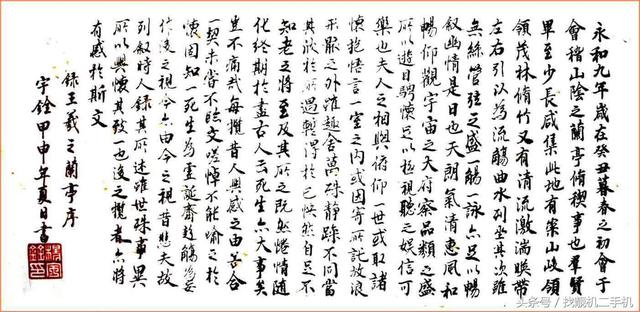 永和九年歲在癸丑暮春之初會于
會稽山陰之蘭亭脩稧事也羣賢
畢至少長咸集此地有崇山峻領
領茂林脩竹又有清流激湍暎帶
左右引以為流觴曲水列坐其次雖
無絲管弦之盛一觴一詠亦足以暢
敘幽情是日也天朗氣清惠風和
暢仰觀宇宙之大府察品類之盛
所以遊目騁懷足以極視聽之娛信可
樂也夫人之相與俯仰一世或取諸
懷抱悟言一室之內或因寄所託放浪
形骸之外雖趣舍萬殊靜躁不同當
其欣於所遇輙得於己怏然自足不
知老之將至及其所之既然惓情隨
化終期於盡古人云死生亦大事矣
豈不痛哉每攬昔人興感之由若合
一契未嘗不臨文嗟悼不能喻之於
懷固知一死生為虛誕齊彭殤為妄
作後之視今亦由今之視昔悲夫故
列敘時人錄其所述雖世殊事異
所以興懷其致一也後之攬者亦將
有感於斯文
錄王羲之蘭亭序
宇銓甲申年夏日書
头条号 / 找靓机二手机